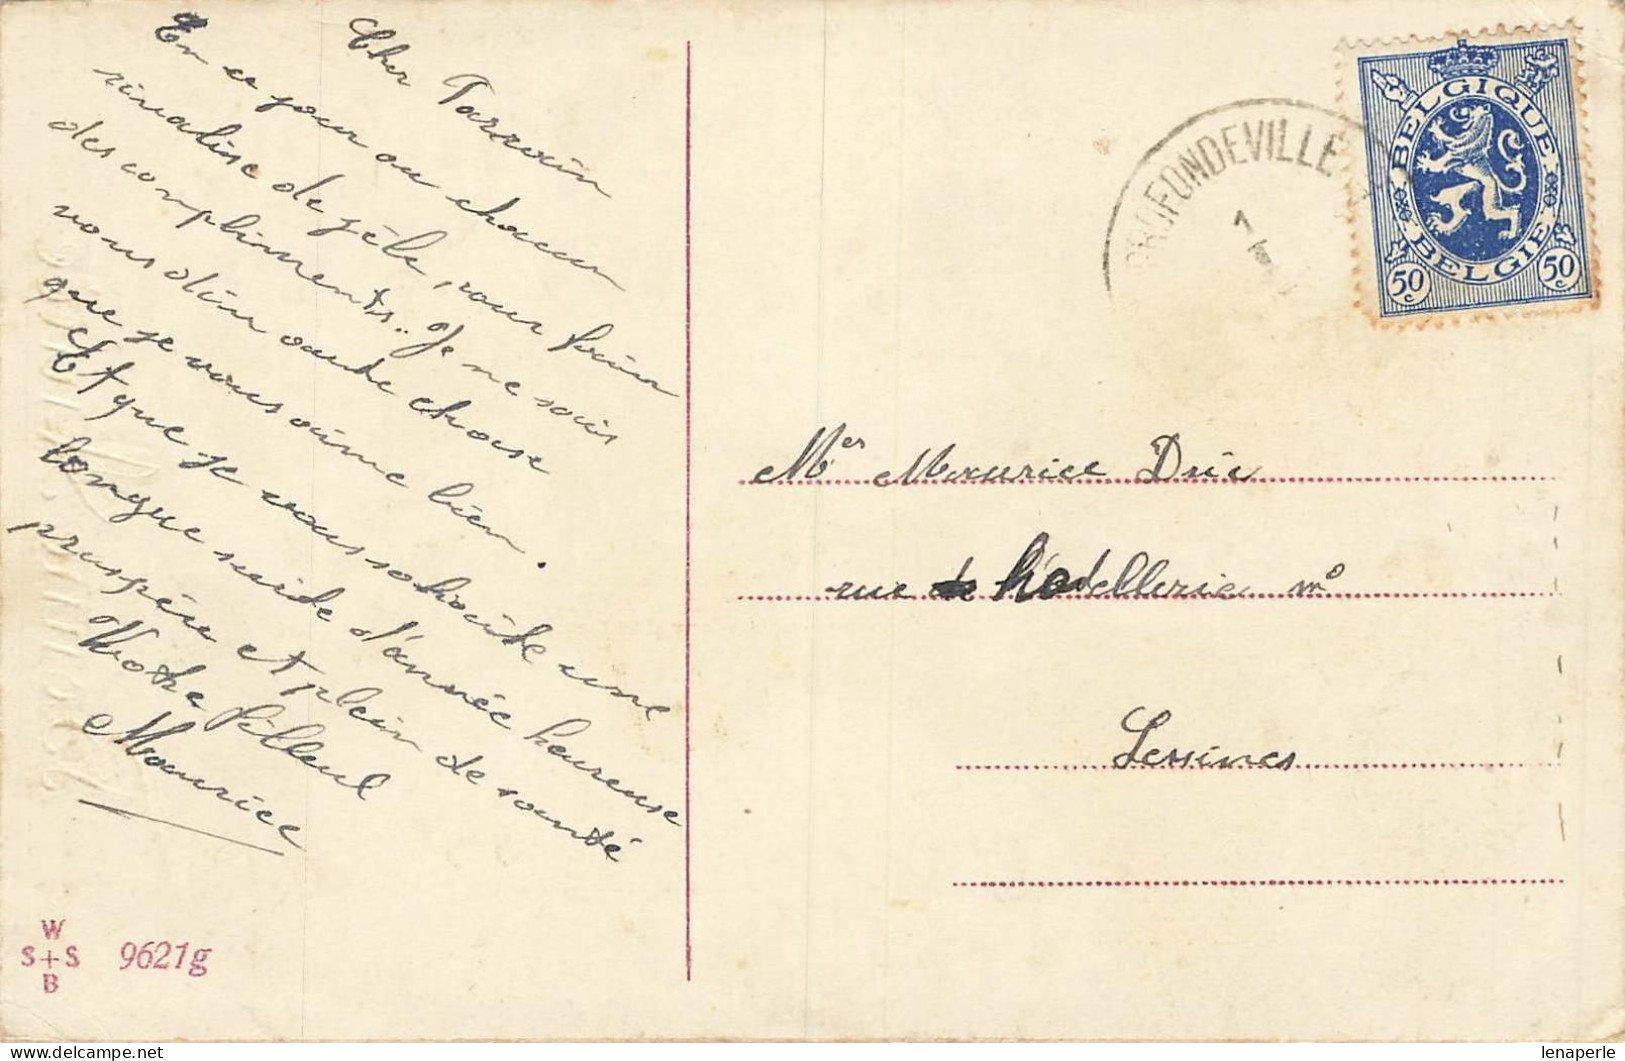 Cher Parrain
En ce jour ou chacun
rivalise de zèle, pour faire
des compliments.. Je ne sais
vous dire autre chose
que je vous aime bien.
Et que je vous souhaite une
longue suite d'année heureuse
prospère et plein de santé
Votre filleul
Maurice
W
S+S
B
9621g
PROFONDEVILLE
1
BELGIQUE
BELGIË
50c
50c
Mer Maurice
rue hotellerie mo
Lessines
lenaperle